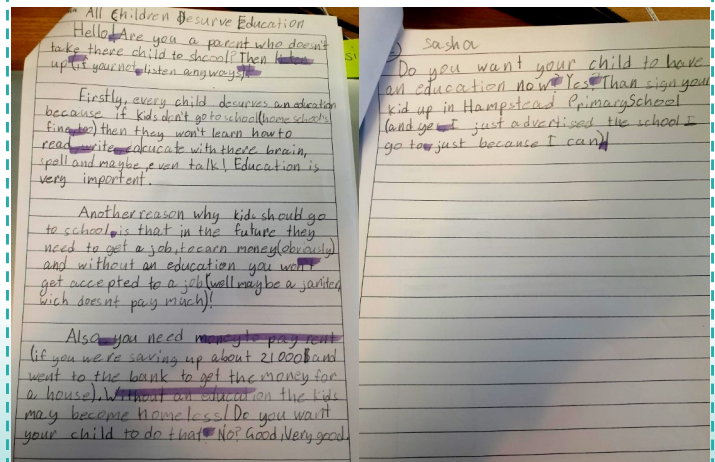 All Children Desurve Education
Hello! Are you a parent who doesn't
take there child to shcool? Then listen
up (if your not, listen anyways).
Firstly, every child desurves an education
because if kids don't go to school (home school's
fine too) then they won't learn how to
read, write, calcucate with there brain,
spell and maybe, even talk! Education is
very importent.
Another reason why kids should go
to school, is that in the future they
need to get a job, to earn money (obviously)
and without an education you won't
get accepted to a job (well maybe a janiter,
wich doesnt pay much)!
Also, you need money to pay rent
(if you we're saving up about 21000$ and
went to the bank to get the money for
a house). Without an education the kids
may become homeless! Do you want
your child to do that? No? Good, Very good.
sasha
Do you want your child to have
an education now? Yes? Than sign your
kid up in Hampstead Primary School
(and yes I just advertised the school I
go to, just because I can)!